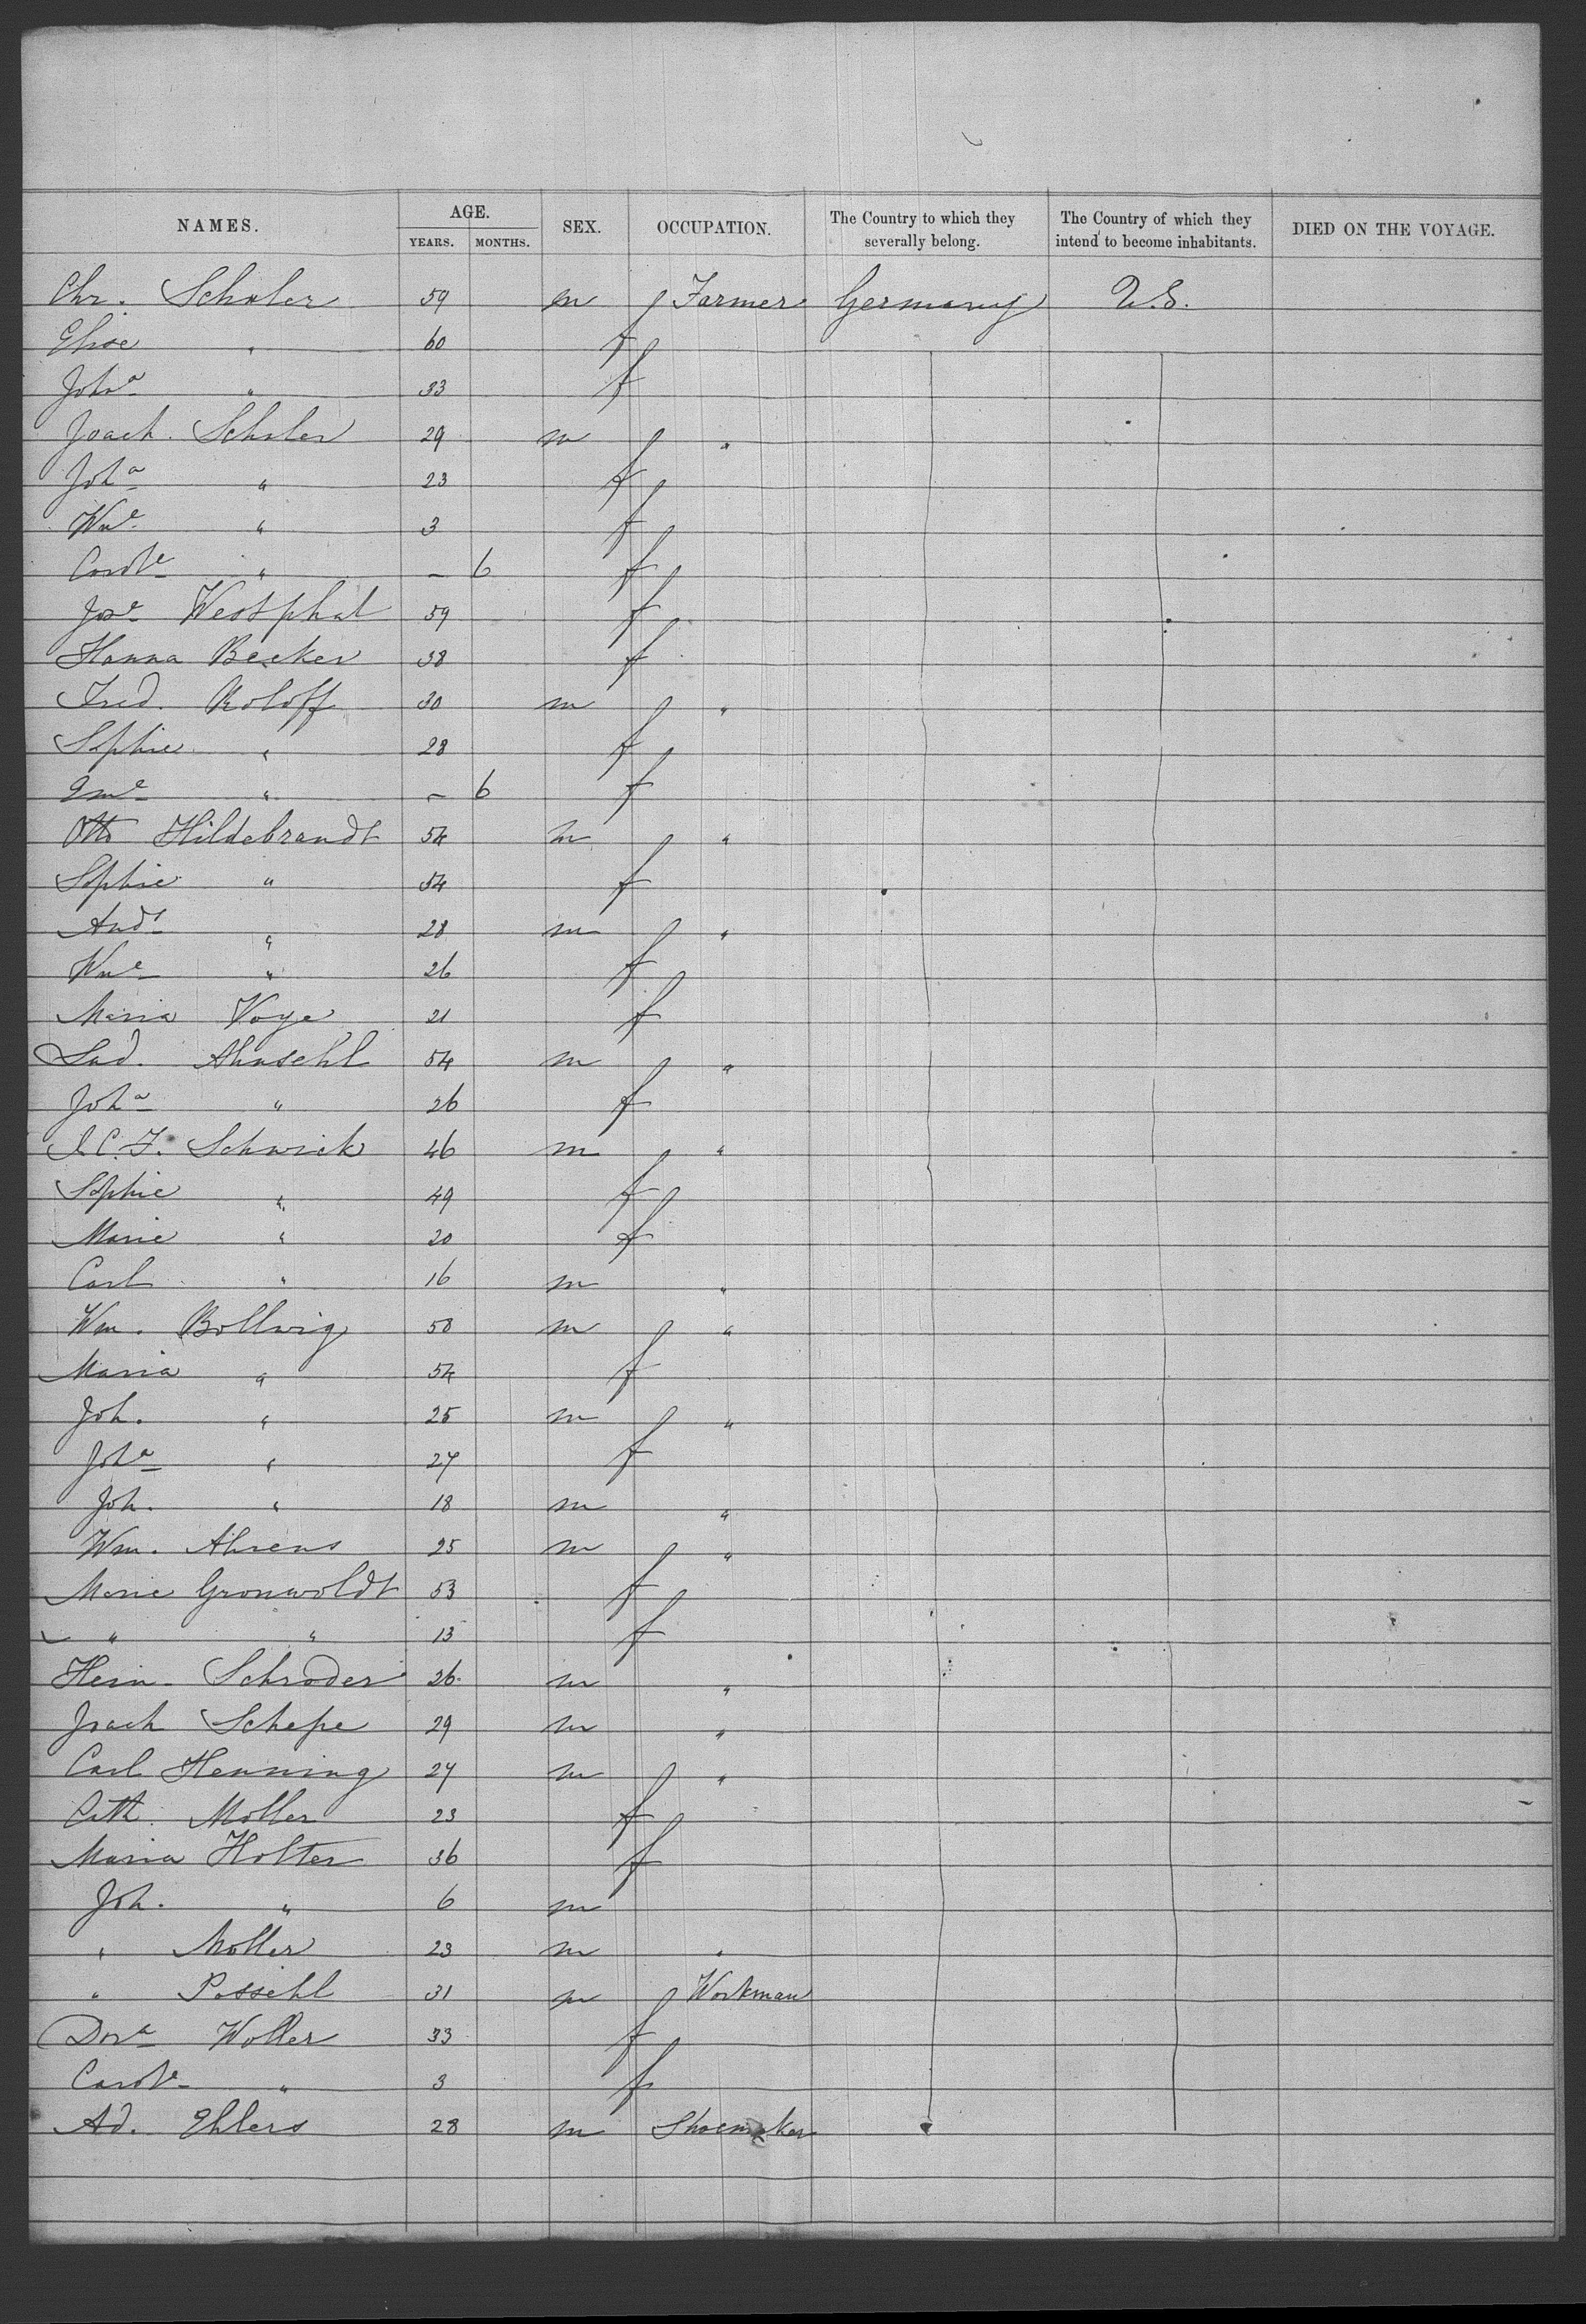 NAMES. AGE. SEX. OCCUPATION. The Country to which they severally belong. The Country of which they intend to become inhabitants. DIED ON THE VOYAGE.
YEARS. MONTHS.
Chr. Schuler 59 m Farmer Germany U.S.
Elise " 60 f
Joha " 33 f
Joach. Schuler 29 m "
Joha " 23 f
Wme " 3 f
Carole " – 6 f
Westphal 59 f
Hanna Becker 38 f
Fred. Roloff 30 m "
Sophie " 28 f
" – 6 f
Otto Hildebrandt 54 m "
Sophie " 54 f
Andr " 28 m "
Wme " 26 f
Maria Voge 21 f
Lud. Ahnsehl 54 m "
Joha " 26 f
J.C.F. Schwick 46 m "
Sophie " 49 f
Marie " 20 f
Carl " 16 m "
Wm. Bollwig 58 m "
Maria " 54 f
Joh. " 25 m "
Joha " 27 f
Joh. " 18 m "
Wm. Ahrens 25 m "
Marie Gronwoldt 53 f
" " 13 f
Hein. Schroder 26 m "
Joach Schepe 29 m "
Carl Henning 27 m "
Cath. Moller 23 f
Maria Holter 36 f
Joh. " 6 m
" Moller 23 m "
" Possehl 31 m Workman
Dora Woller 33 f
Carole " 3 f
Ad. Ehlers 28 m Shoemaker